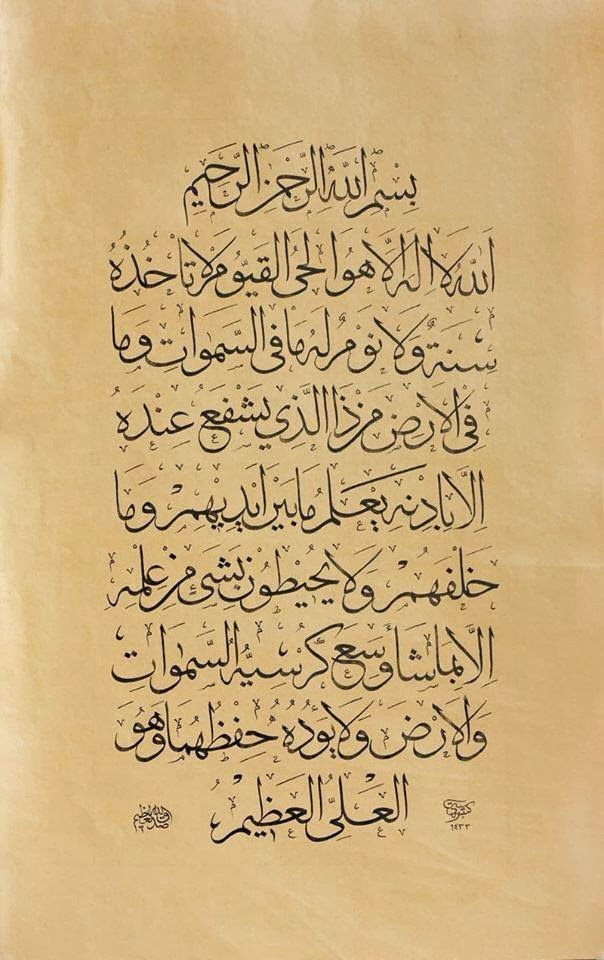 بِسْمِ اللهِ الرَّحْمٰنِ الرَّحِيمِ
اَللهُ لَا اِلٰهَ اِلَّا هُوَ الْحَىُّ الْقَيُّومُ لَا تَأْخُذُهُ
سِنَةٌ وَلَا نَوْمٌ لَهُ مَا فِى السَّمٰوَاتِ وَمَا
فِى الْاَرْضِ مَنْ ذَا الَّذِي يَشْفَعُ عِنْدَهُ
اِلَّا بِاِذْنِهِ يَعْلَمُ مَا بَيْنَ اَيْدِيهِمْ وَمَا
خَلْفَهُمْ وَلَا يُحِيطُونَ بِشَىْءٍ مِنْ عِلْمِهِ
اِلَّا بِمَا شَاءَ وَسِعَ كُرْسِيُّهُ السَّمٰوَاتِ
وَالْاَرْضَ وَلَا يَؤُدُهُ حِفْظُهُمَا وَهُوَ
الْعَلِىُّ الْعَظِيمُ
صدق الله العظيم
١٤٣٣